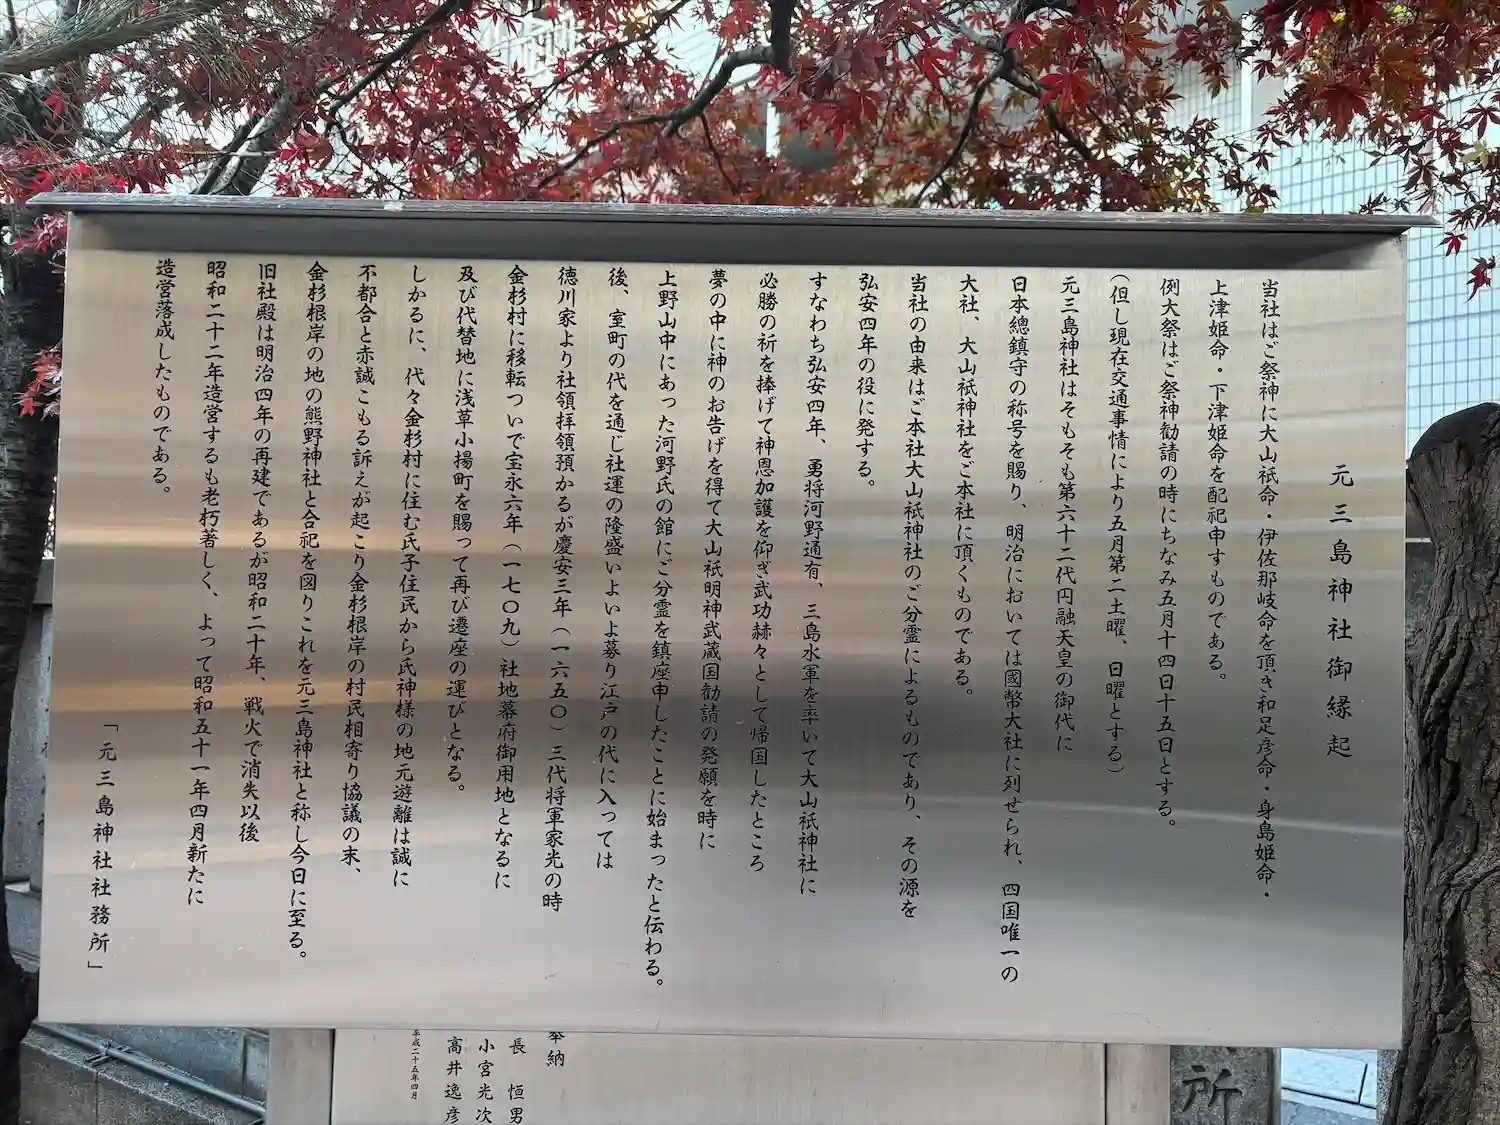 元三島神社御縁起
当社はご祭神に大山祇命・伊佐那岐命を頂き和足彦命・身島姫命・
上津姫命・下津姫命を配祀申すものである。
例大祭はご祭神勧請の時にちなみ五月十四日十五日とする。
(但し現在交通事情により五月第二土曜、日曜とする)
元三島神社はそもそも第六十二代円融天皇の御代に
日本總鎮守の称号を賜り、明治においては國幣大社に列せられ、四国唯一の
大社、大山祇神社をご本社に頂くものである。
当社の由来はご本社大山祇神社のご分霊によるものであり、その源を
弘安四年の役に発する。
すなわち弘安四年、勇将河野通有、三島水軍を率いて大山祇神社に
必勝の祈を捧げて神恩加護を仰ぎ武功赫々として帰国したところ
夢の中に神のお告げを得て大山祇明神武蔵国勧請の発願を時に
上野山中にあった河野氏の館にご分霊を鎮座申したことに始まったと伝わる。
後、室町の代を通じ社運の隆盛いよいよ募り江戸の代に入っては
徳川家より社領拝領預かるが慶安三年(一六五〇)三代将軍家光の時
金杉村に移転ついで宝永六年(一七〇九)社地幕府御用地となるに
及び代替地に浅草小揚町を賜って再び遷座の運びとなる。
しかるに、代々金杉村に住む氏子住民から氏神様の地元遊離は誠に
不都合と赤誠こもる訴えが起こり金杉根岸の村民相寄り協議の末、
金杉根岸の地の熊野神社と合祀を図りこれを元三島神社と称し今日に至る。
旧社殿は明治四年の再建であるが昭和二十年、戦火で消失以後
昭和二十二年造営するも老朽著しく、よって昭和五十一年四月新たに
造営落成したものである。
「元三島神社社務所」
奉納
長 恒男
小宮光次
高井逸彦
平成二十五年四月
所